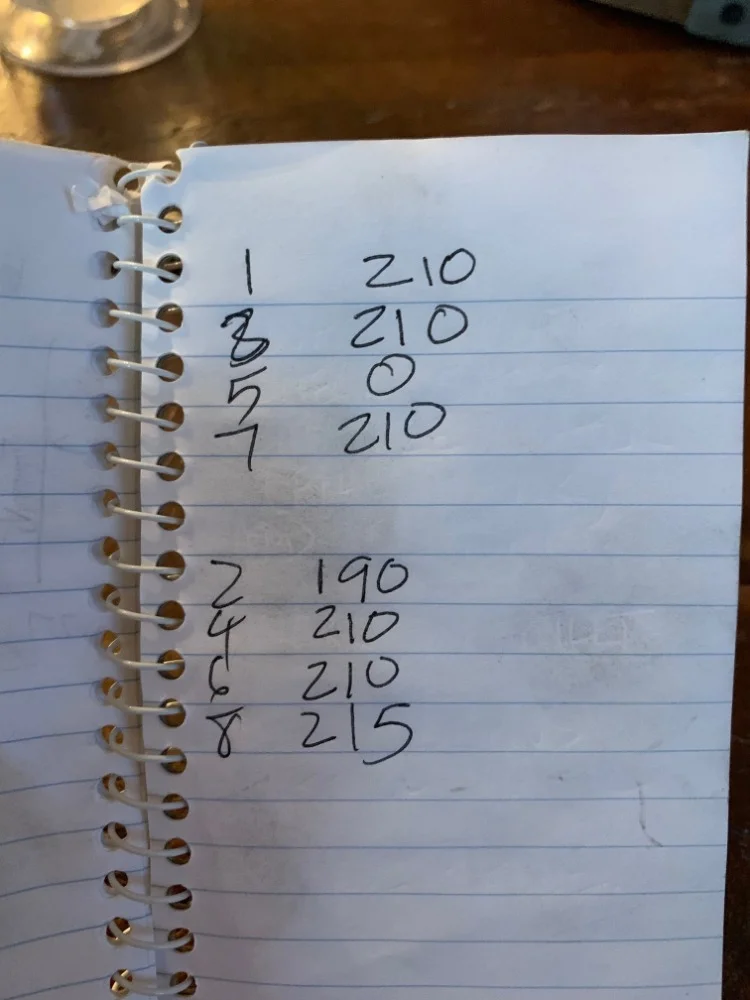 1 210
3 210
5 0
7 210
2 190
4 210
6 210
8 215